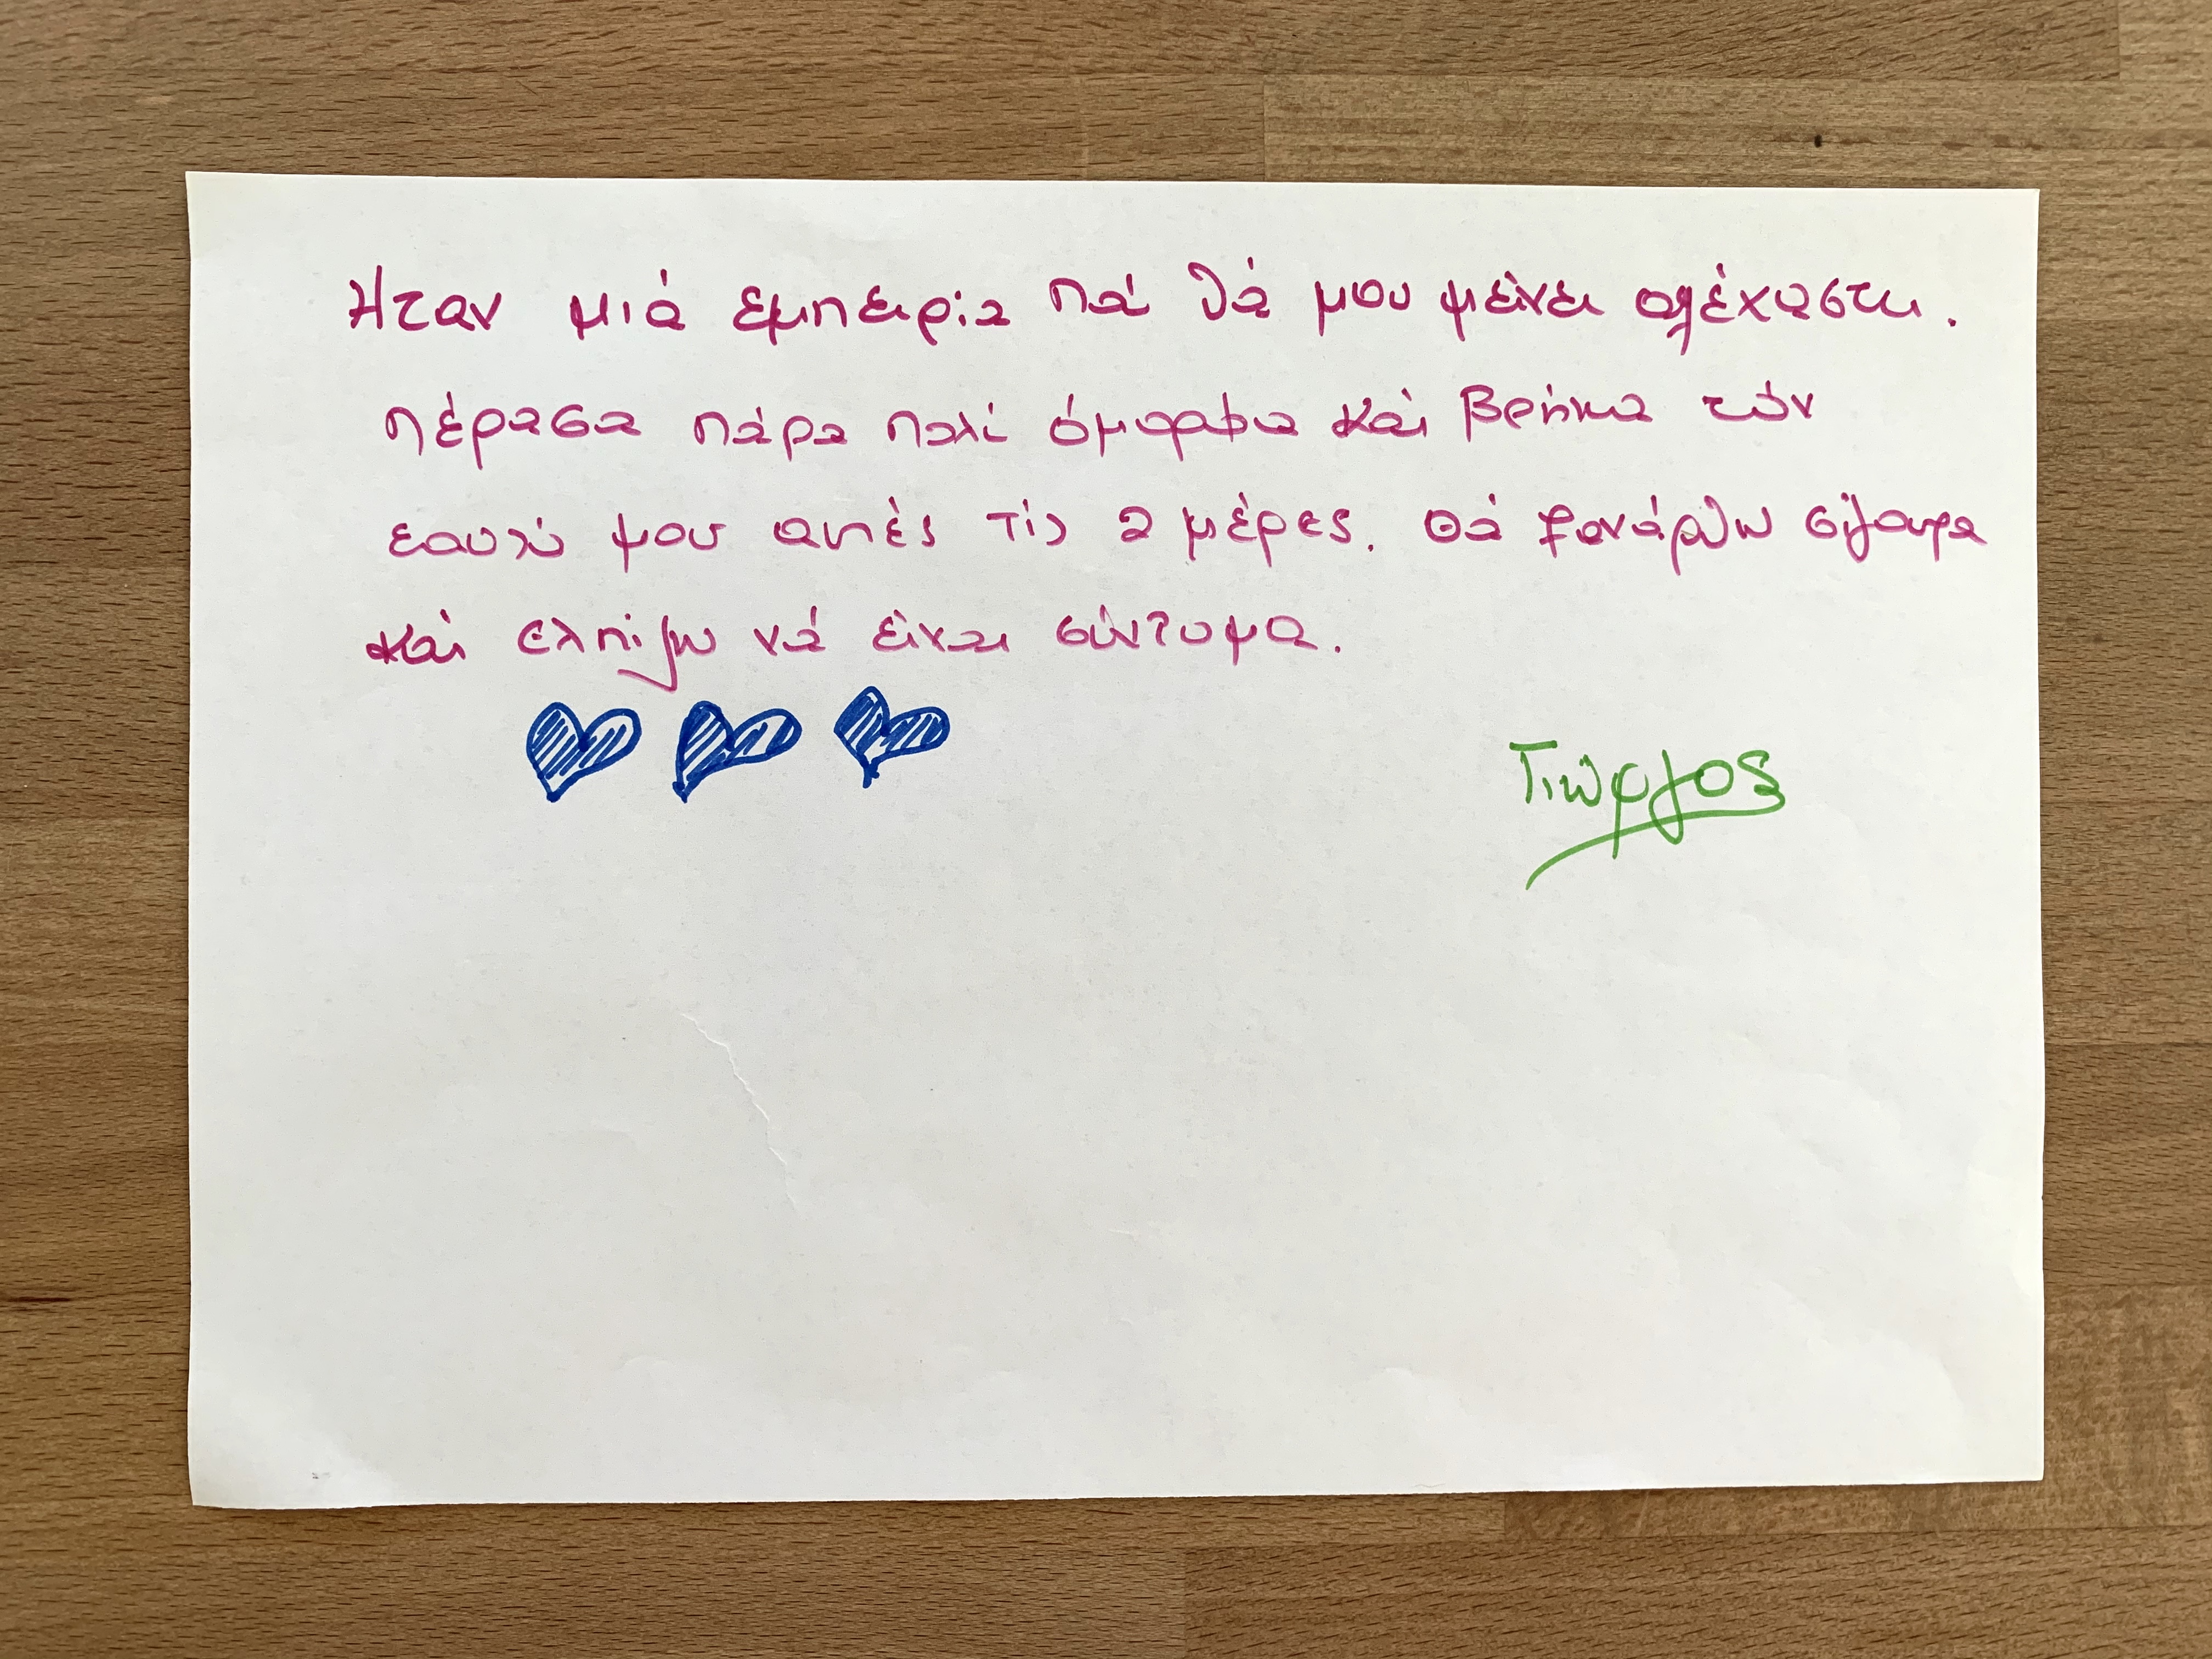 Ήταν μιά εμπειρία πού θά μου μείνει αξέχαστη.
πέρασα πάρα πολύ όμορφα καί βρήκα τόν
εαυτό μου αυτές τίς 2 μέρες. Θά ξανάρθω σίγουρα
καί ελπίζω νά είναι σύντομα.
Γιώργος